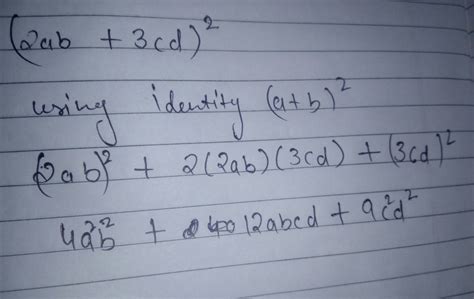 (2ab + 3cd)²
using identity (a+b)²
(2ab)² + 2(2ab)(3cd) + (3cd)²
4a²b² + 12abcd + 9c²d²